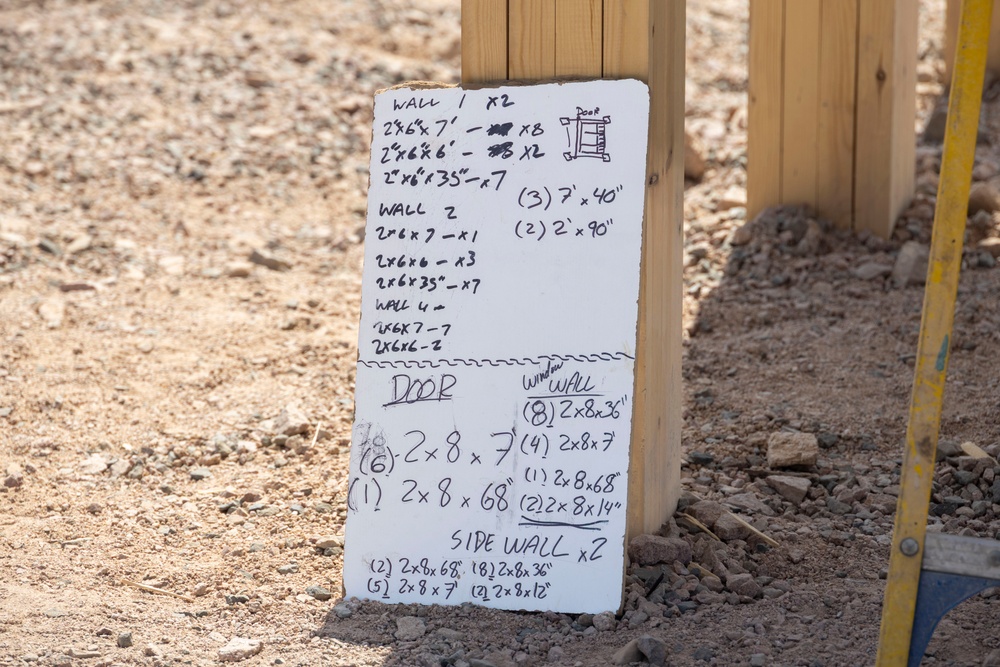 WALL 1 x2
2"x6"x7' - x8
2"x6"x6' - x2
2"x6"x35"-x7
DOOR
(3) 7' x 40"
(2) 2' x 90"
WALL 2
2x6x7 - x1
2x6x6 - x3
2x6x35" - x7
WALL 4 -
2x6x7 - 7
2x6x6 - 2
DOOR
(6) 2x8x7'
(1) 2x8x68"
Window
WALL
(8) 2x8x36"
(4) 2x8x7'
(1) 2x8x68"
(2) 2x8x14"
SIDE WALL x2
(2) 2x8x68" (8) 2x8x36"
(5) 2x8x7' (2) 2x8x12"